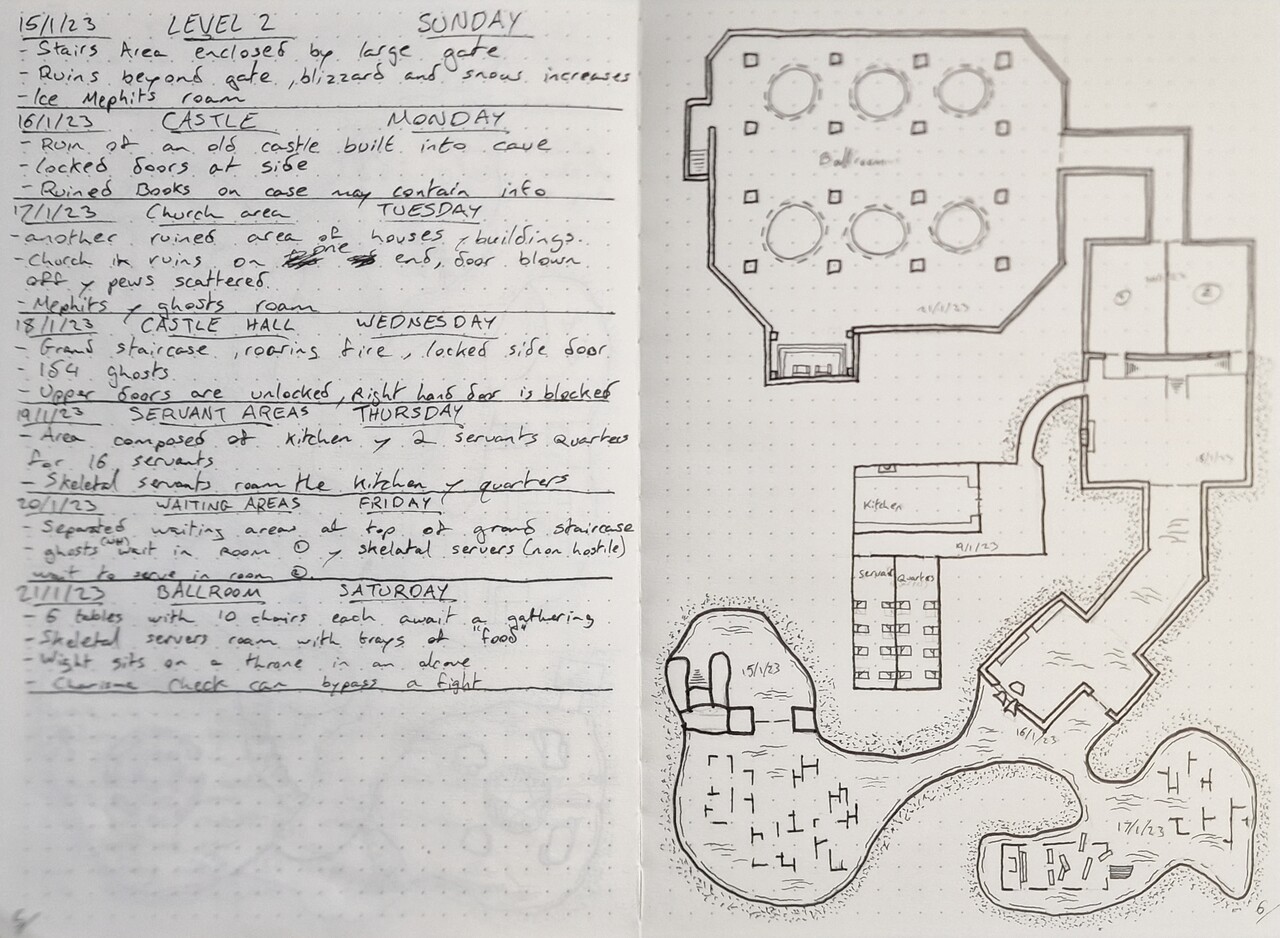 15/1/23 LEVEL 2 SUNDAY
- Stairs Area enclosed by large gate
- Ruins beyond gate, blizzard and snow increases
- Ice Mephits roam
16/1/23 CASTLE MONDAY
- Ruin of an old castle built into cave
- locked doors at side
- Ruined Books on case may contain info
17/1/23 Church area TUESDAY
- another ruined area of houses y buildings.
- Church in ruins on one end, door blown
off y pews scattered.
- Mephits y ghosts roam
18/1/23 CASTLE HALL WEDNESDAY
- Grand staircase, roaring fire, locked side door
- 1d4 ghosts
- Upper doors are unlocked, Right hand door is blocked
19/1/23 SERVANT AREAS THURSDAY
- Area composed of kitchen y 2 servants quarters
for 16 servants
- Skeletal servants roam the kitchen y quarters
20/1/23 WAITING AREAS FRIDAY
- Separated waiting areas at top of grand staircase
- ghosts (WH) wait in room ① y skeletal servers (non hostile)
wait to serve in room ②.
21/1/23 BALLROOM SATURDAY
- 6 tables with 10 chairs each await a gathering
- Skeletal servers roam with trays of "food"
- Wight sits on a throne in an alcove
- Charisma check can bypass a fight
Ballroom
21/1/23
① ②
18/1/23
Kitchen
19/1/23
Servant Quarters
15/1/23
16/1/23
17/1/23
6